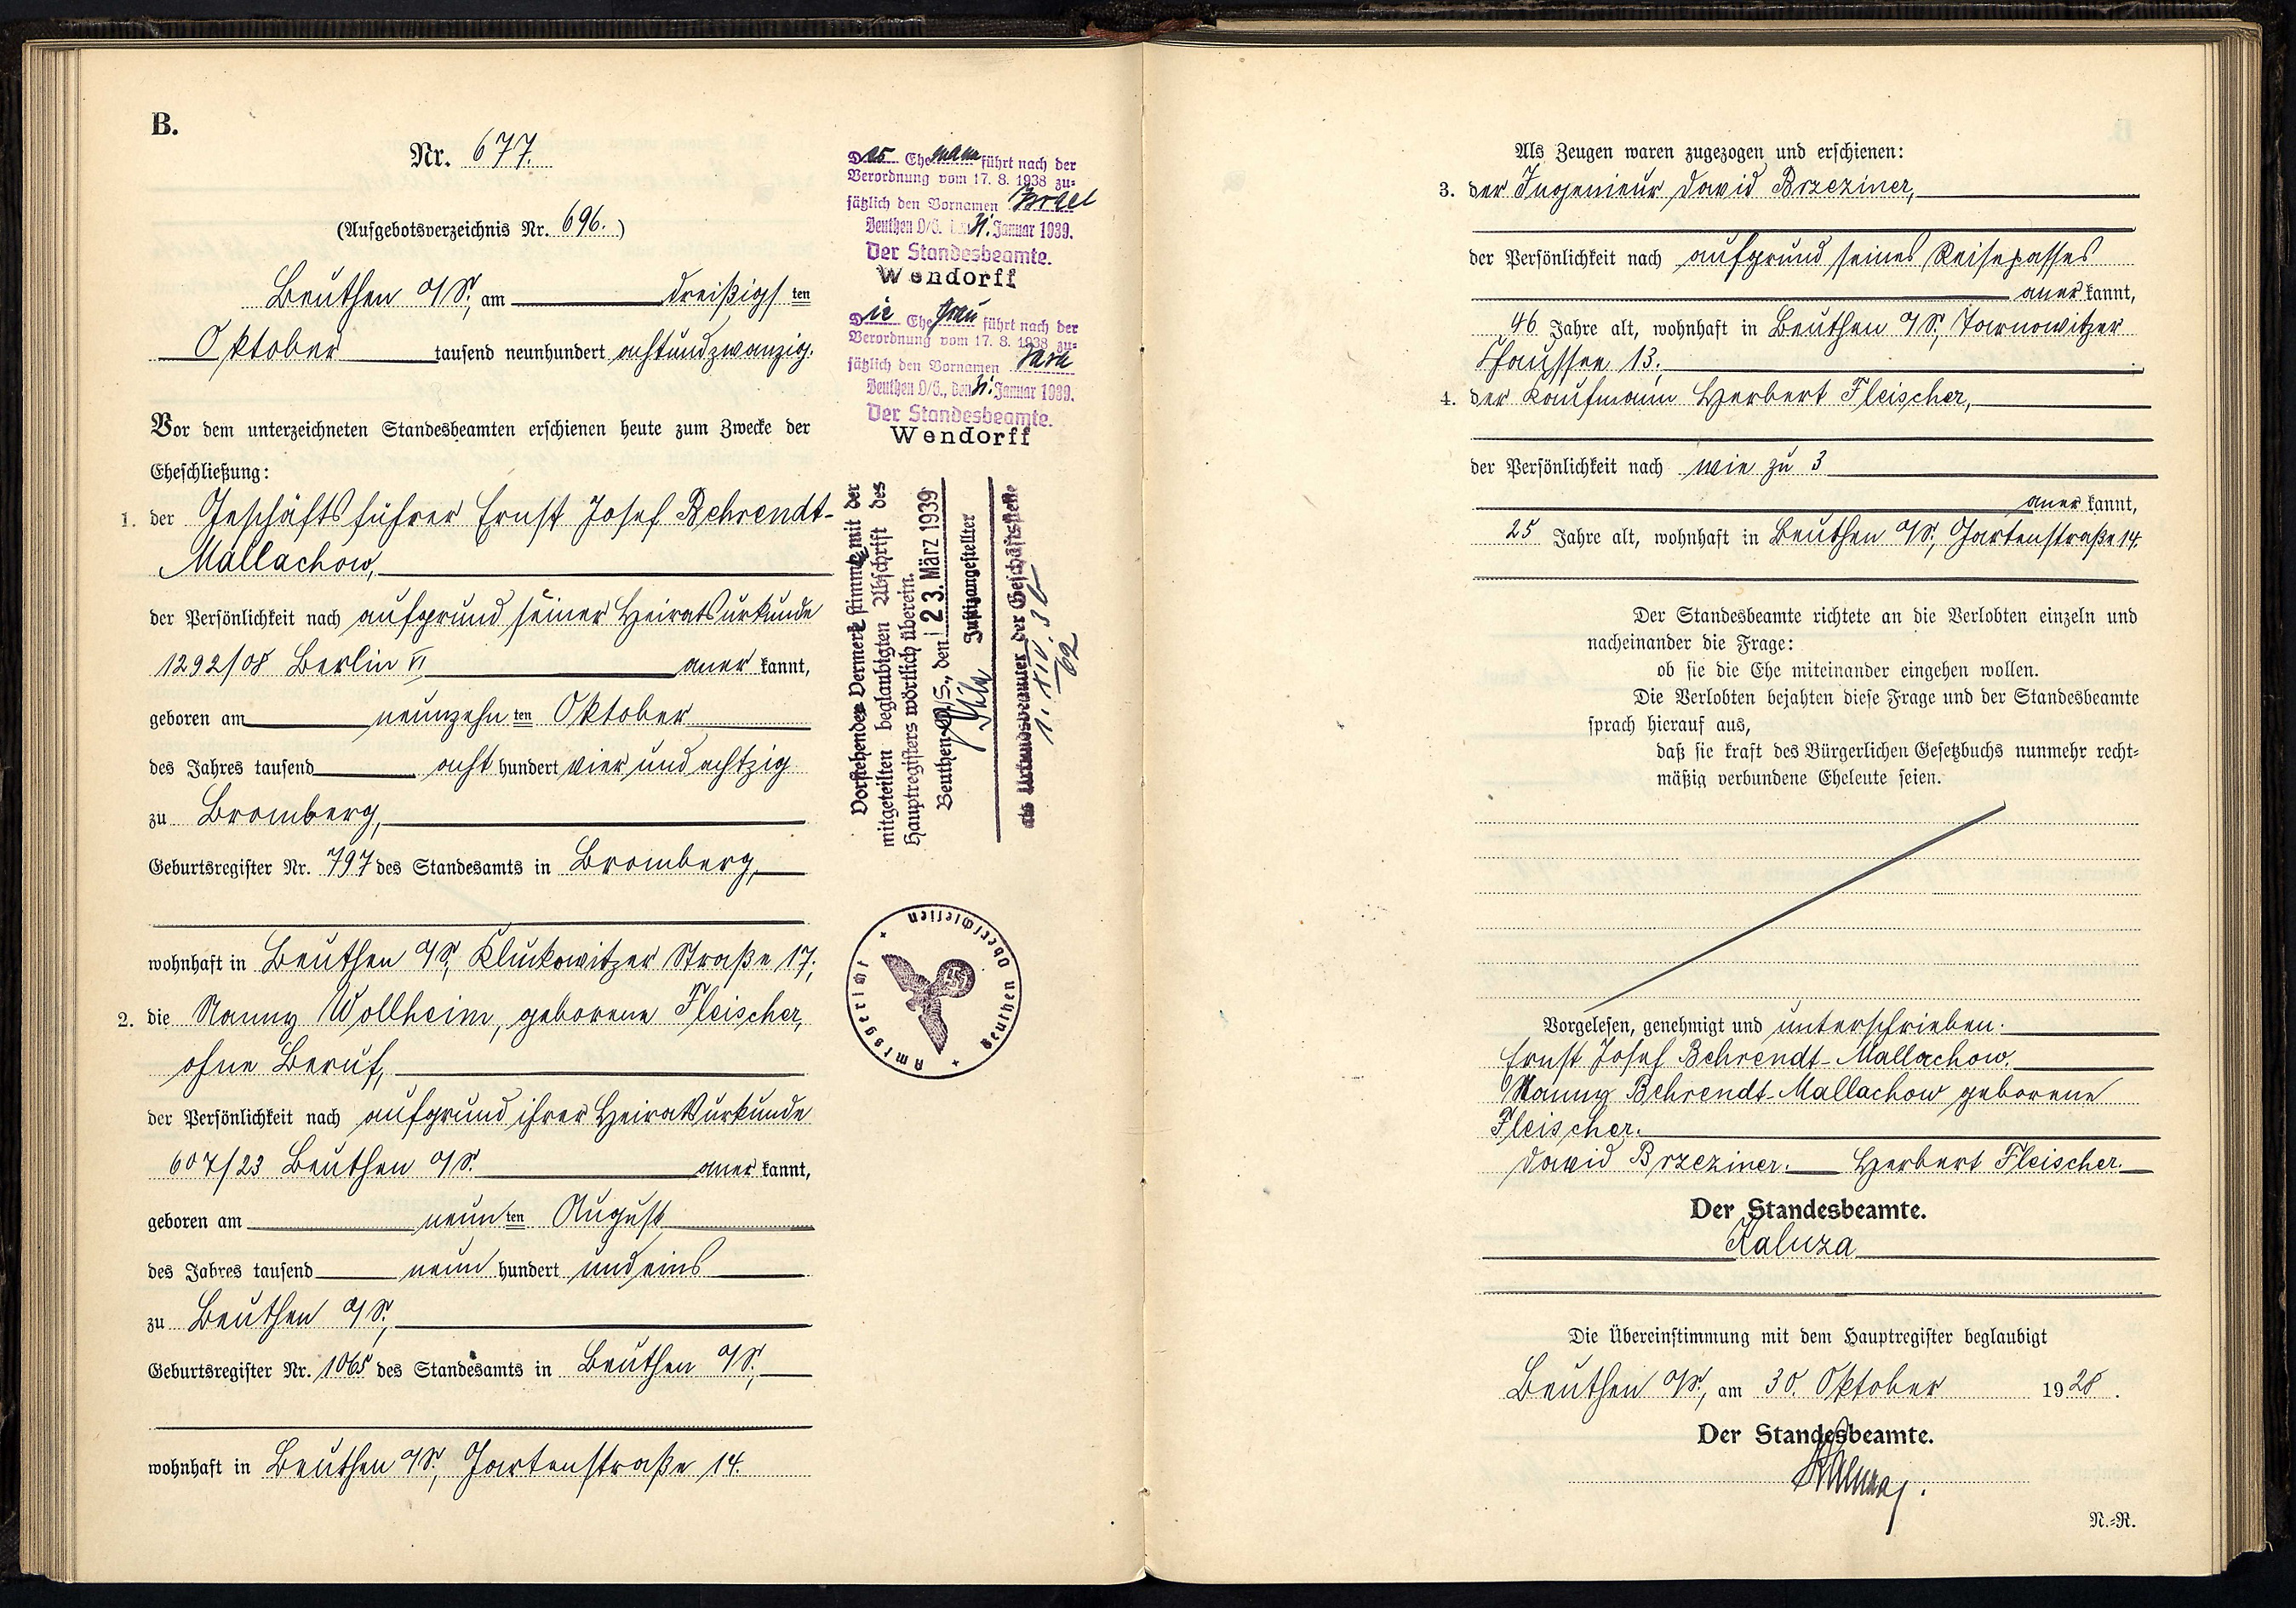 B.
Nr. 677.
(Aufgebotsverzeichnis Nr. 696.)
Beuthen O/S., am dreißigsten
Oktober tausend neunhundert achtundzwanzig.
Vor dem unterzeichneten Standesbeamten erschienen heute zum Zwecke der
Eheschließung:
1. der Geschäftsführer Ernst Josef Behrendt-
Mallachow,
der Persönlichkeit nach aufgrund seiner Heiratsurkunde
1292/08 Berlin VI anerkannt,
geboren am neunzehnten Oktober
des Jahres tausend achthundert vier und achtzig
zu Bromberg,
Geburtsregister Nr. 797 des Standesamts in Bromberg,
wohnhaft in Beuthen O/S., Kluckowitzer Straße 17;
2. die Nanny Wollheim, geborene Fleischer,
ohne Beruf,
der Persönlichkeit nach aufgrund ihrer Heiratsurkunde
607/23 Beuthen O/S. anerkannt,
geboren am neunten August
des Jahres tausend neunhundert und eins
zu Beuthen O/S.,
Geburtsregister Nr. 1065 des Standesamts in Beuthen O/S.,
wohnhaft in Beuthen O/S., Gartenstraße 14.
Der Ehemann führt nach der
Verordnung vom 17. 8. 1938 zu-
sätzlich den Vornamen Israel
Beuthen O/S. den 31. Januar 1939.
Der Standesbeamte.
Wendorff
Die Ehefrau führt nach der
Verordnung vom 17. 8. 1938 zu-
sätzlich den Vornamen Sara
Beuthen O/S., den 31. Januar 1939.
Der Standesbeamte.
Wendorff
Vorstehender Vermerk stimmt mit der
mitgeteilten beglaubigten Abschrift des
Hauptregisters wörtlich überein.
Beuthen O/S., den 23. März 1939
Justizangestellter
als Urkundsbeamter der Geschäftsstelle
Amtsgericht
Beuthen Oberschlesien
Als Zeugen waren zugezogen und erschienen:
3. der Ingenieur David Brzeziner,
der Persönlichkeit nach aufgrund seines Reisepasses
anerkannt,
46 Jahre alt, wohnhaft in Beuthen O/S., Tarnowitzer
Chaussee 13.
4. der Kaufmann Herbert Fleischer,
der Persönlichkeit nach wie zu 3
anerkannt,
25 Jahre alt, wohnhaft in Beuthen O/S., Gartenstraße 14.
Der Standesbeamte richtete an die Verlobten einzeln und
nacheinander die Frage:
ob sie die Ehe miteinander eingehen wollen.
Die Verlobten bejahten diese Frage und der Standesbeamte
sprach hierauf aus,
daß sie kraft des Bürgerlichen Gesetzbuchs nunmehr recht-
mäßig verbundene Eheleute seien.
Vorgelesen, genehmigt und unterschrieben.
Ernst Josef Behrendt-Mallachow.
Nanny Behrendt-Mallachow geborene
Fleischer.
David Brzeziner. Herbert Fleischer.
Der Standesbeamte.
Kaluza
Die Übereinstimmung mit dem Hauptregister beglaubigt
Beuthen O/S., am 30. Oktober 1928.
Der Standesbeamte.
Kaluza.
N.-R.